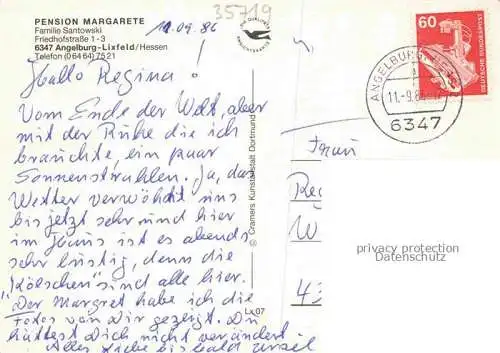 PENSION MARGARETE
Familie Santowski
Friedhofstraße 1-3
6347 Angelburg-Lixfeld/Hessen
Telefon (06464) 7521
11.09.86
35719
Hallo Regina!
Vom Ende der Welt, aber
mit der Ruhe die ich
brauchte, ein paar
Sonnenstrahlen. Ja, das
Wetter verwöhnt uns
bis jetzt sehr und hier
im Haus ist es abends
sehr lustig, denn die
"Kölschen" sind alle hier.
Der Margret habe ich die
Fotos von Dir gezeigt. Du
hättest Dich nicht verändert
Alles Liebe bis bald Ursel
© Cramers Kunstanstalt Dortmund
Lx 07
60
DEUTSCHE BUNDESPOST
ANGELBURG
11.-9.86
6347
Frau
Re
W
43
privacy protection
Datenschutz